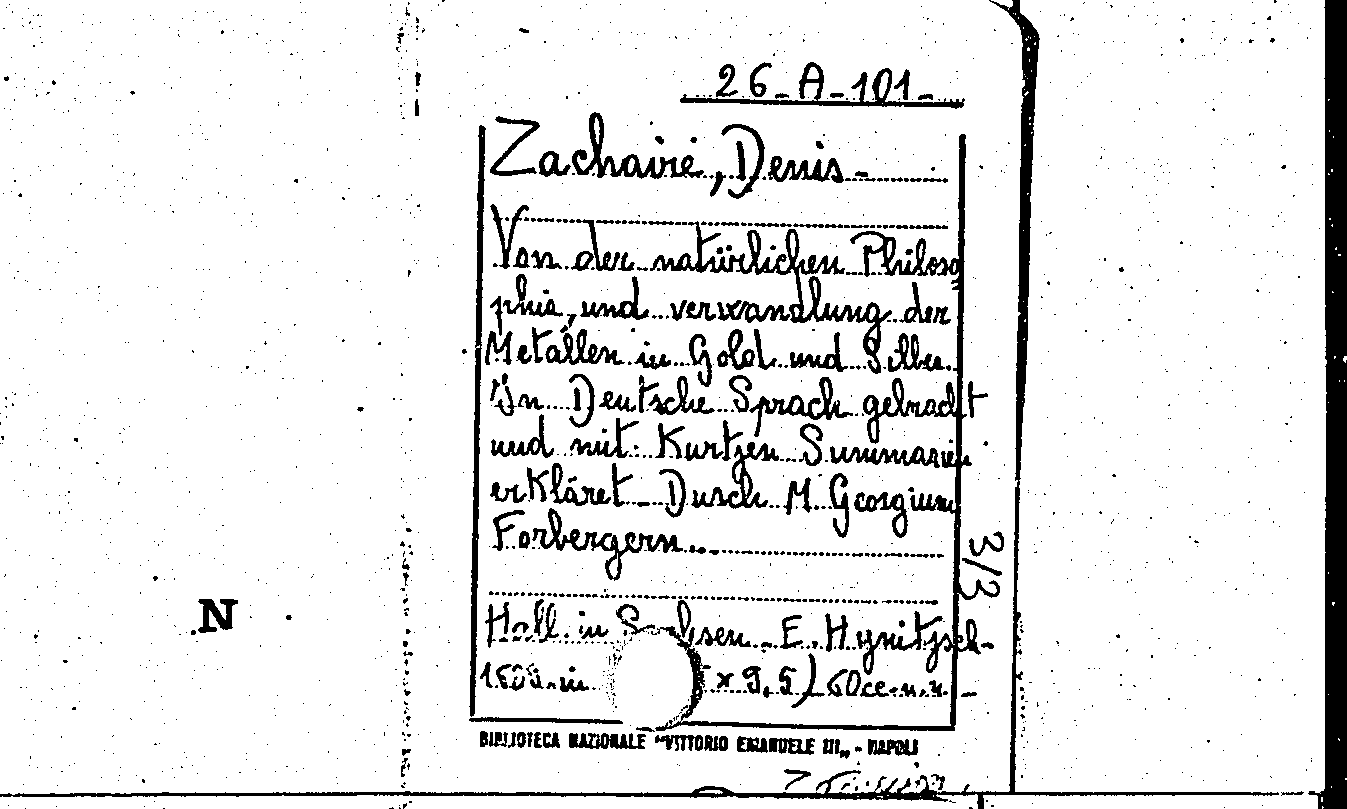 26-A-101-
Zachairé, Denis-
Von der natürlichen Philoso
phia, und verwandlung der
Metallen in Gold und Silber.
In Deutsche Sprach gebracht
und mit Kurtzen Summarien
erKläret - Dusch M. Georgium
Forbergern...
3/3
N
Hall. in Sachsen - E. Hynitzsch-
in x 9,5) 60cc.n.n.-
BIBLIOTECA NAZIONALE "VITTORIO EMANUELE III„ - NAPOLI